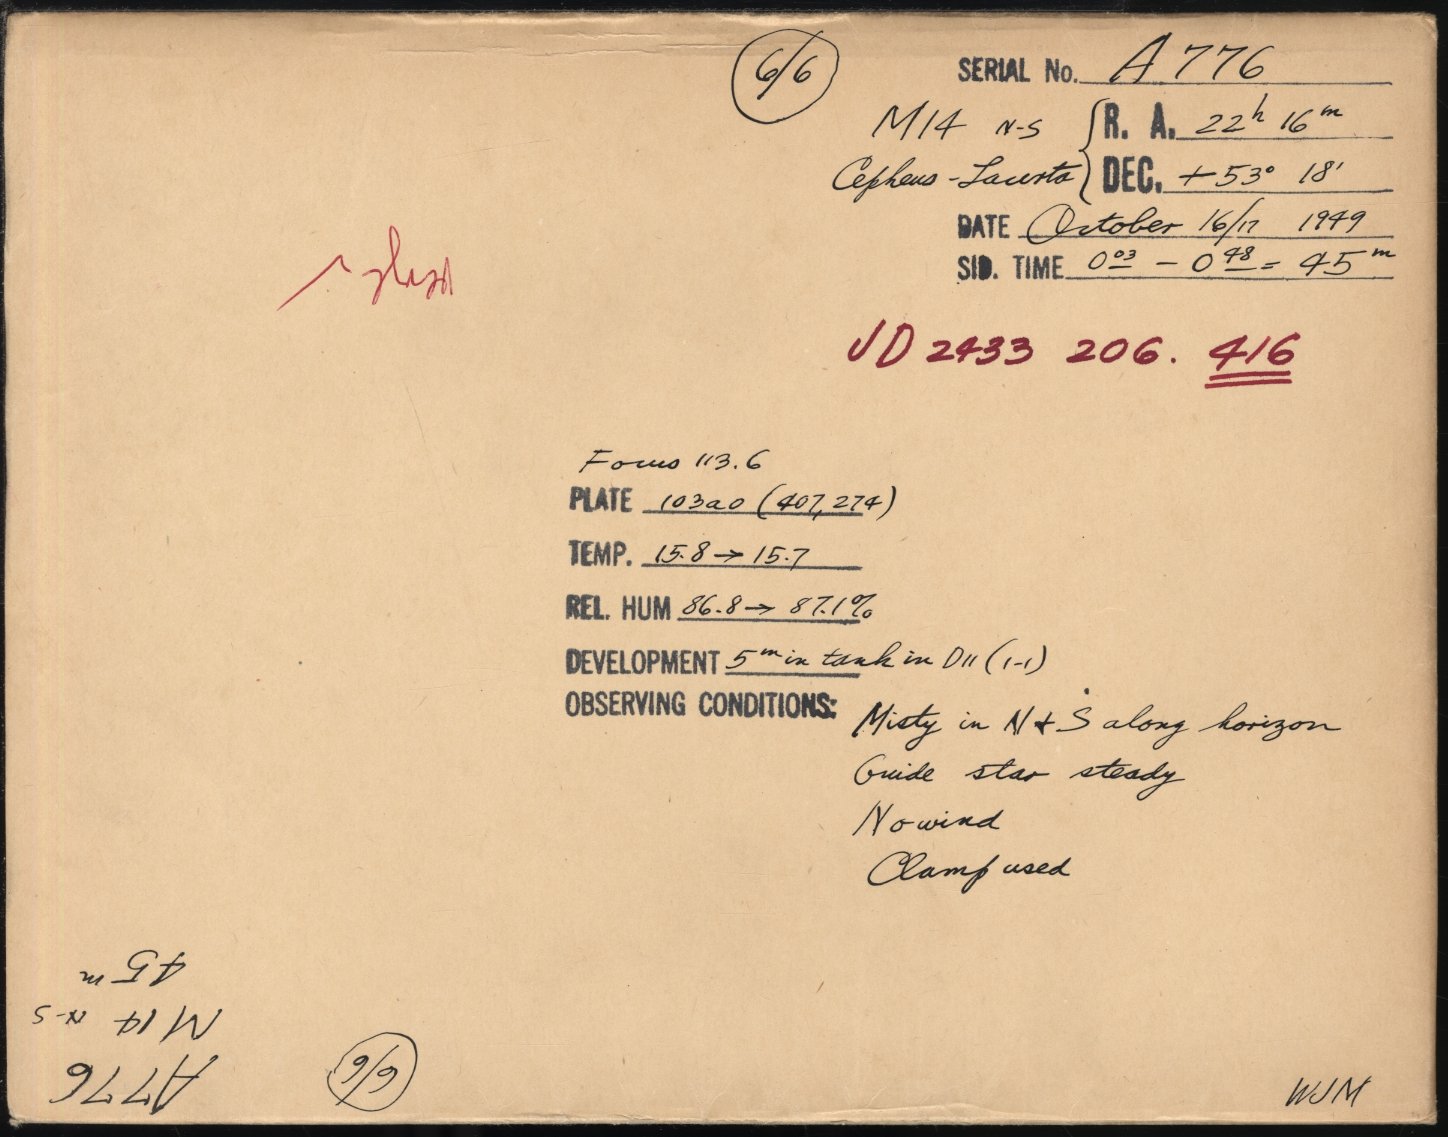 6/6
SERIAL No. A 776
M14 N-S R. A. 22h 16m
Cepheus-Lacerta DEC. +53° 18'
DATE October 16/17 1949
SID. TIME 0 03 - 0 48 = 45m
JD 2433 206. 416
Focus 113.6
PLATE 103aO (407,274)
TEMP. 15.8 → 15.7
REL. HUM 86.8 → 87.1%
DEVELOPMENT 5m in tank in D11 (1-1)
OBSERVING CONDITIONS:
Misty in N & S along horizon
Guide star steady
No wind
Clamp used
A776
M14 N-S
45m
6/6
WJM